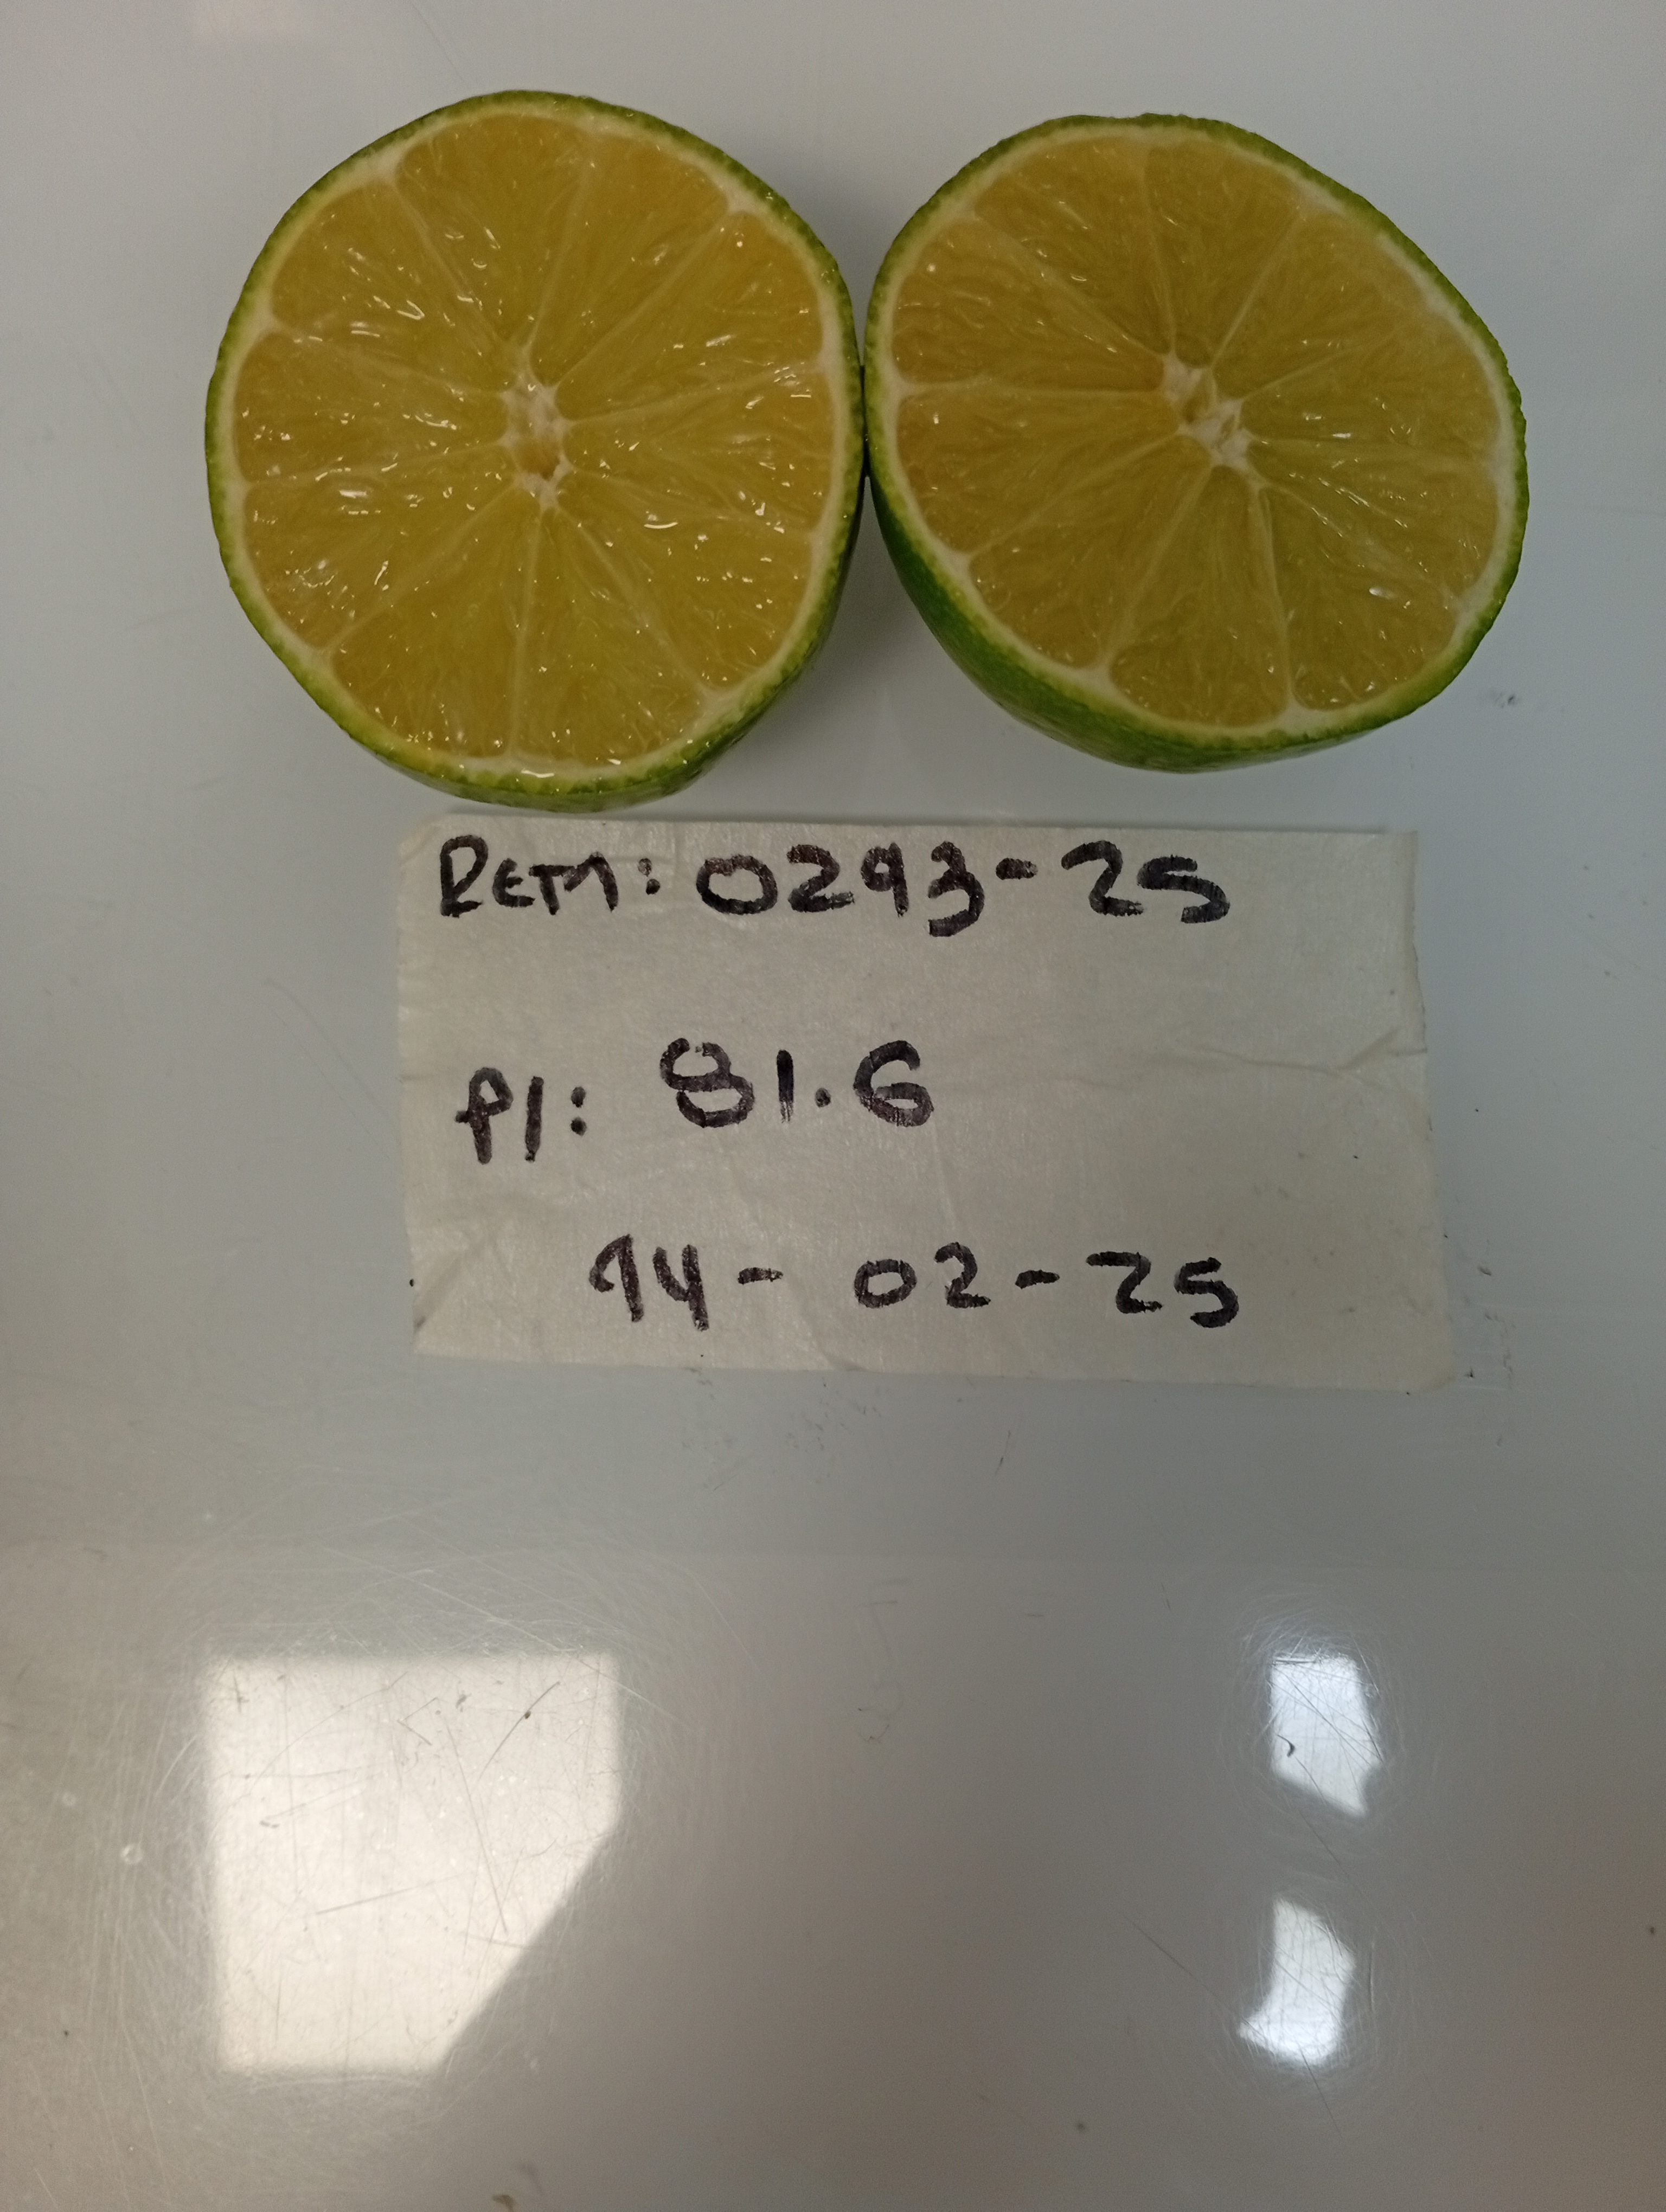 REM: 0293-25
P1: 81.6
14-02-25